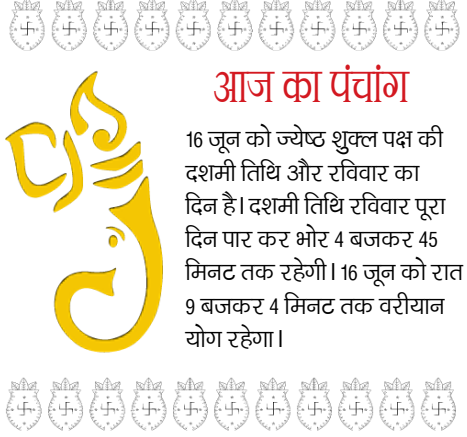 आज का पंचांग
16 जून को ज्येष्ठ शुक्ल पक्ष की
दशमी तिथि और रविवार का
दिन है। दशमी तिथि रविवार पूरा
दिन पार कर भोर 4 बजकर 45
मिनट तक रहेगी। 16 जून को रात
9 बजकर 4 मिनट तक वरीयान
योग रहेगा।